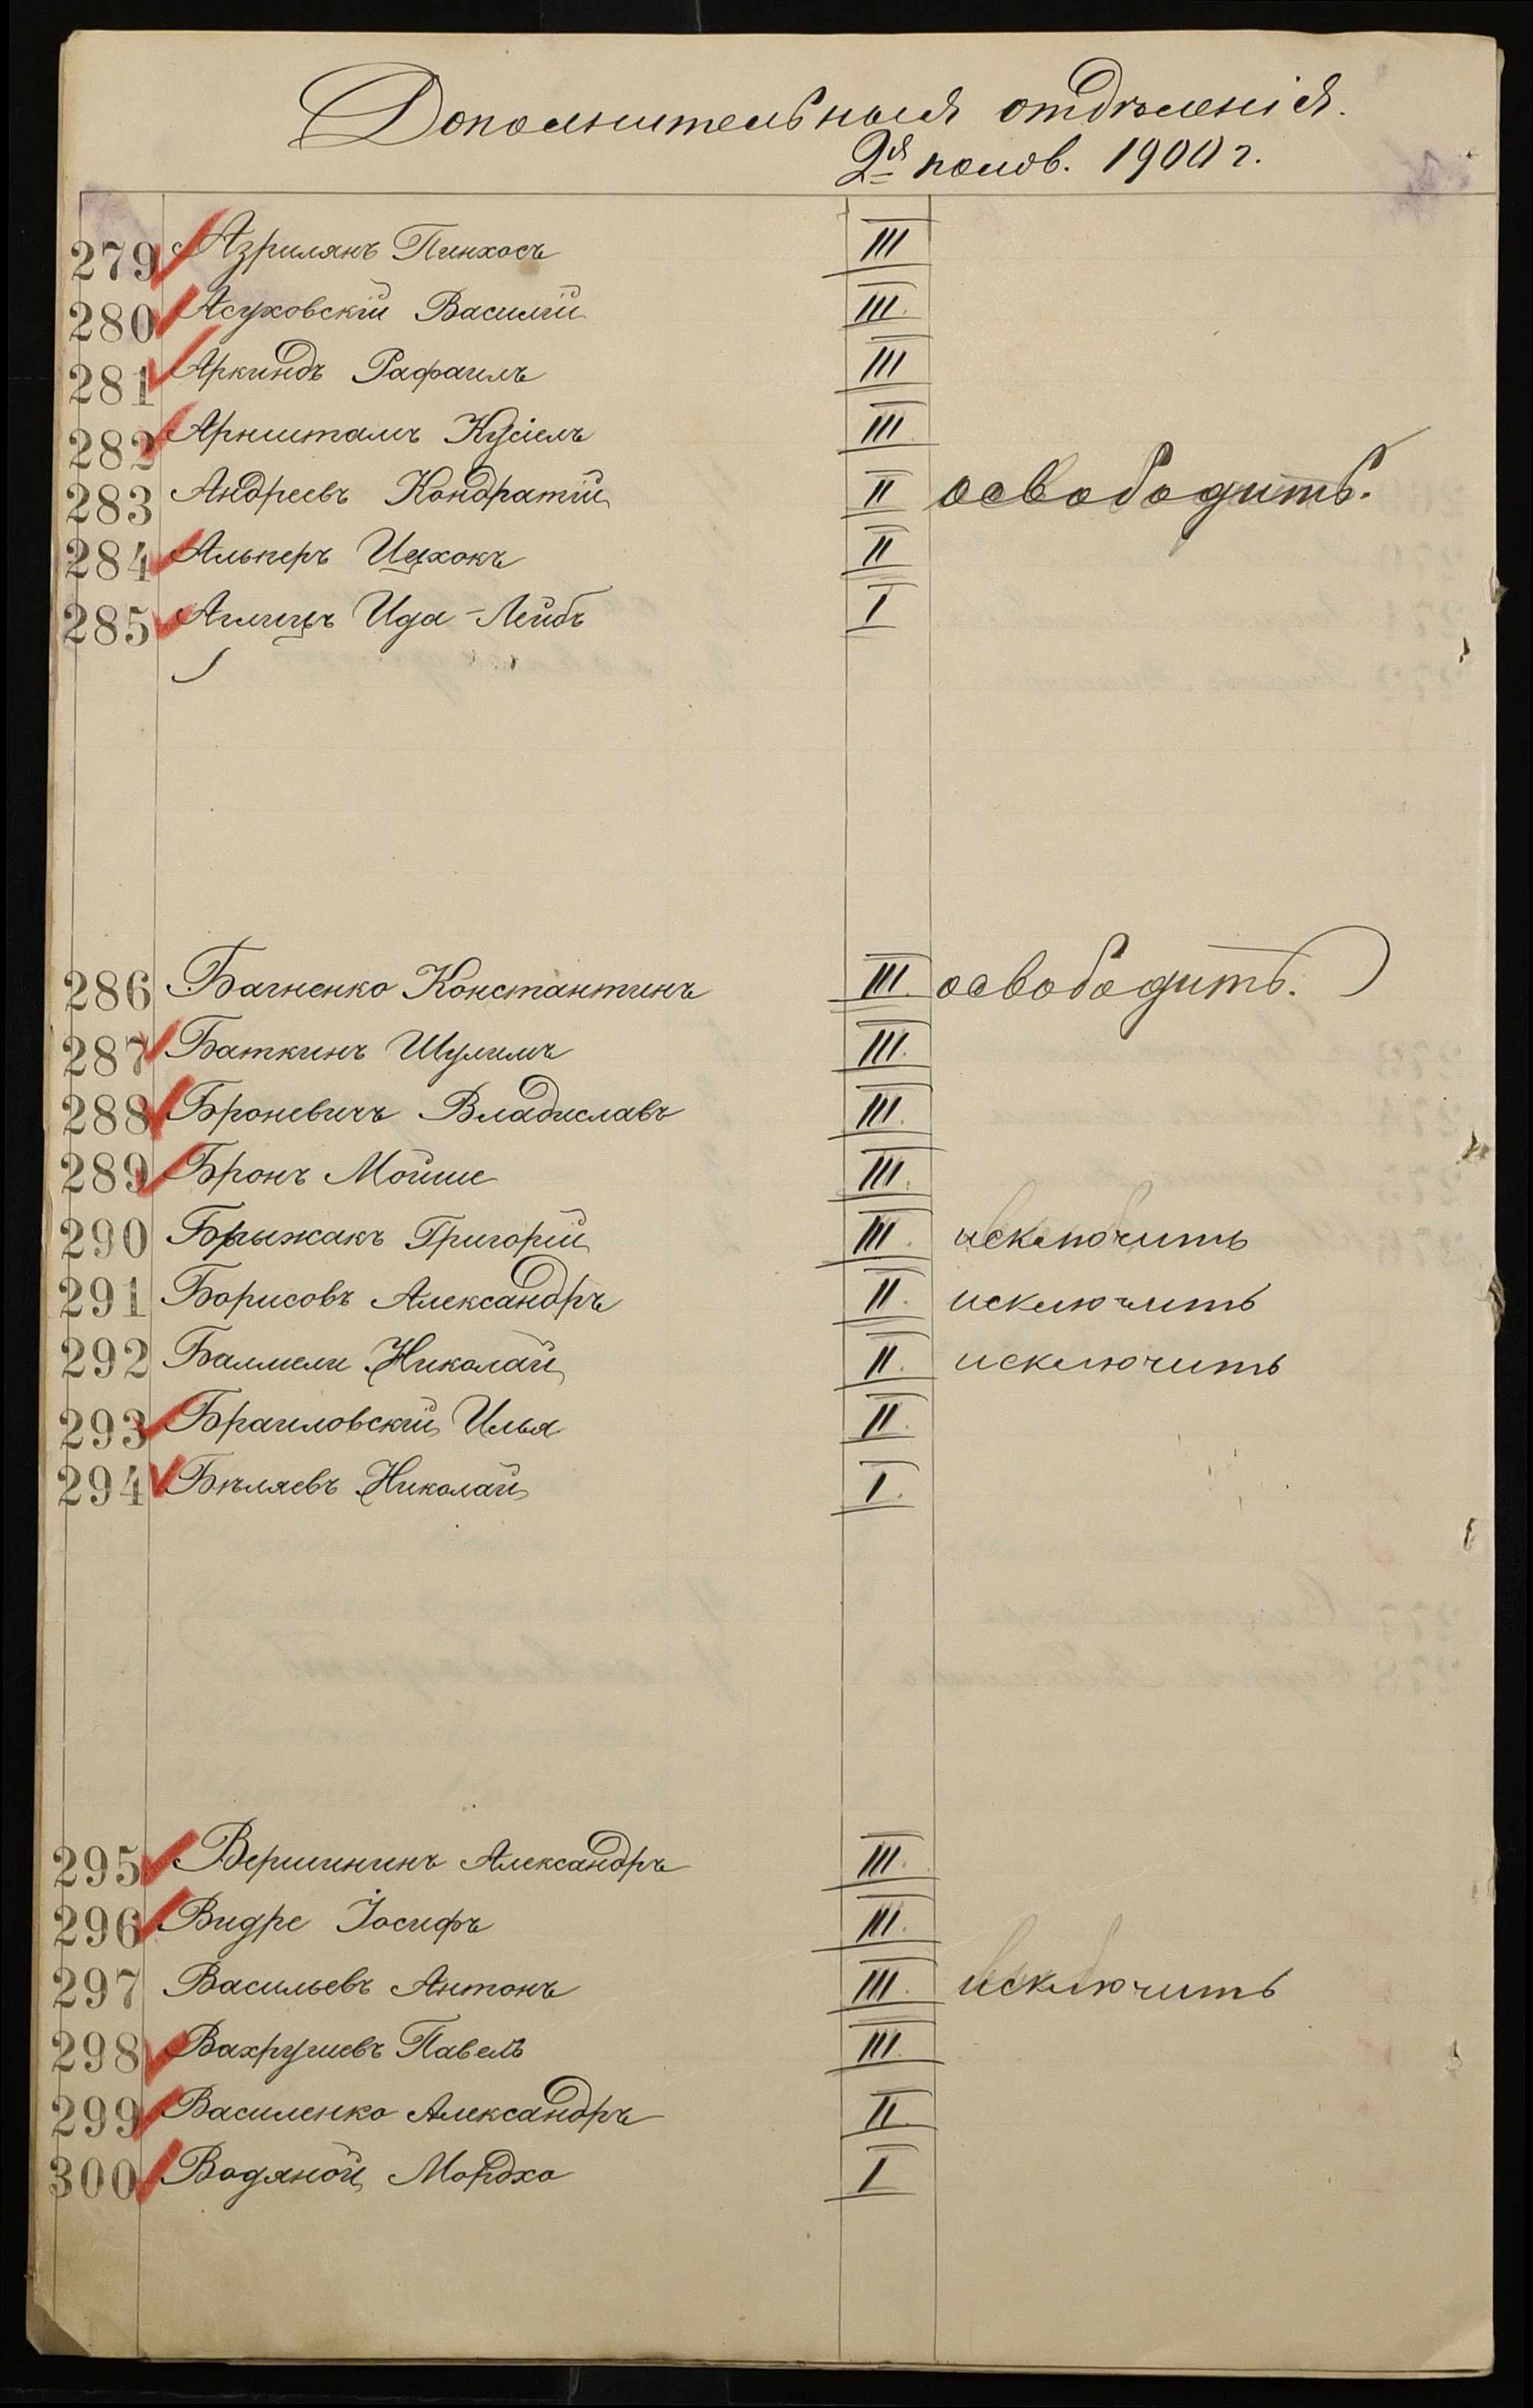 Дополнительныя отдѣленія.
2я полов. 1900 г.
279 Азрилянъ Пинхосъ III
280 Асуховскій Василій III.
281 Аркиндъ Рафаилъ III
282 Арнштамъ Кусіелъ III
283 Андреевъ Кондратій II освободить.
284 Альперъ Ицхокъ II
285 Ида-Лейбъ I
286 Багненко Константинъ III. освободить.
287 Баткинъ Шулимъ III.
288 Броневичъ Владиславъ III.
289 Бронъ Мойше III.
290 Брыжакъ Григорій III. исключить
291 Борисовъ Александръ II. исключить
292 Балмели Николай II. исключить
293 Браиловскій Илья II.
294 Бѣляевъ Николай I.
295 Вершининъ Александръ III.
296 Видре Іосифъ III.
297 Васильевъ Антонъ III. исключить
298 Вахрушевъ Павелъ III.
299 Василенко Александръ II.
300 Водяной Мордхо I